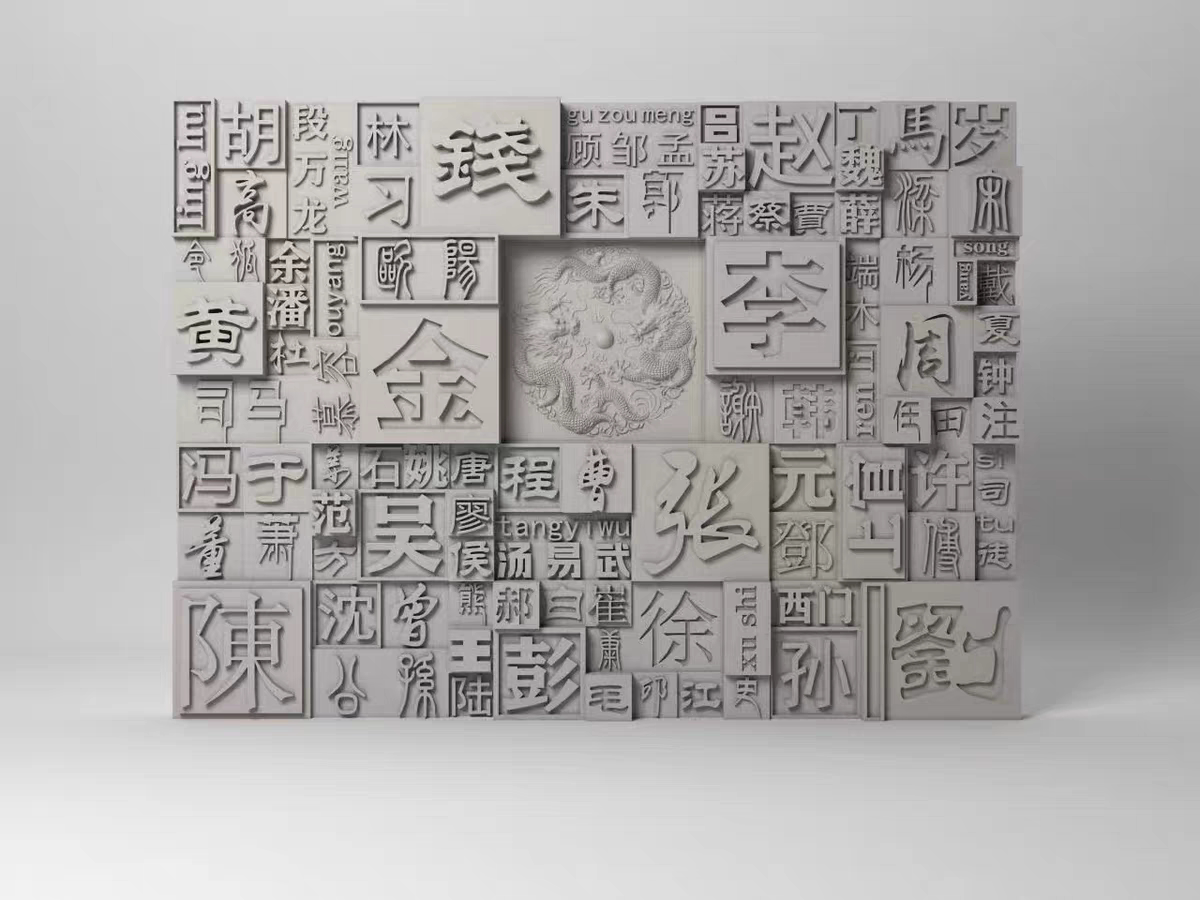 胡
高
段
万
龙
wang
林
习
錢
gu zou meng
顾 邹 孟
朱
郭
吕
苏
赵
丁
魏
蒋
蔡
賈
薛
馬
梁
岁
宋
令
狐
余
潘
杜
ouyang
歐陽
黄
司马
慕容
金
李
謝
韩
端木
ren
杨
song
戴
夏
周
钟
任
田
注
冯
于
董
萧
范
方
石
姚
唐
吴
廖
侯
程
曹
tangyiwu
汤易武
张
元
鄧
许
傅
si
司
tu
徒
陳
沈
曾
公孫
熊
王
陆
郝
白
崔
彭
肃
毛
邱
江
徐
xu shi
史
西门
孙
劉